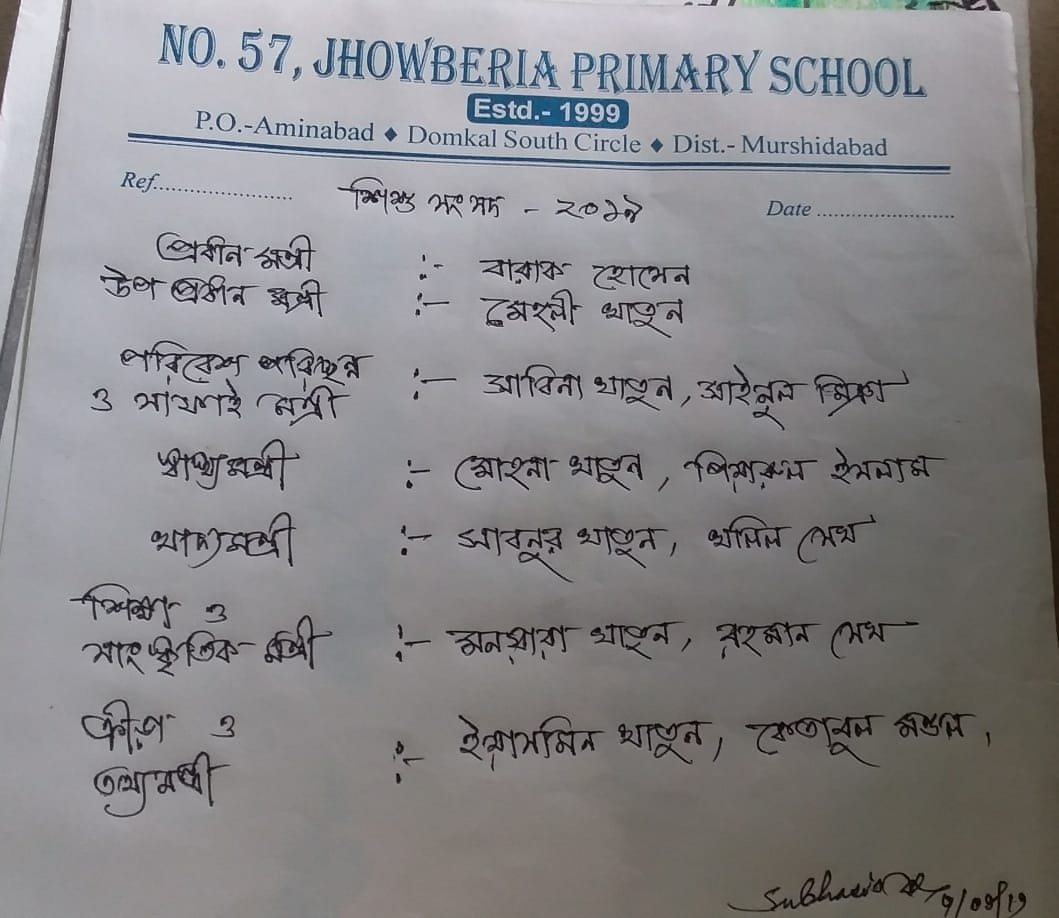 NO. 57, JHOWBERIA PRIMARY SCHOOL
Estd.- 1999
P.O.-Aminabad ♦ Domkal South Circle ♦ Dist.- Murshidabad
Ref....................... Date .......................
শিশু সংসদ - ২০১৯
প্রধান মন্ত্রী :- বারাক হোসেন
উপ প্রধান মন্ত্রী :- মেহলী খাতুন
পরিবেশ পরিচ্ছন্ন
ও সাফাই মন্ত্রী :- আবিনা খাতুন, আইনুল মির্জা
স্বাস্থ্যমন্ত্রী :- মোহনা খাতুন, পিয়ারুল ইসলাম
খাদ্যমন্ত্রী :- সাবনুর খাতুন, খলিল সেখ
শিক্ষা ও
সাংস্কৃতিক মন্ত্রী :- মনযারা খাতুন, রহমান সেখ
ক্রীড়া ও
তথ্যমন্ত্রী :- ইয়াসমিন খাতুন, কেতাবুল মণ্ডল,